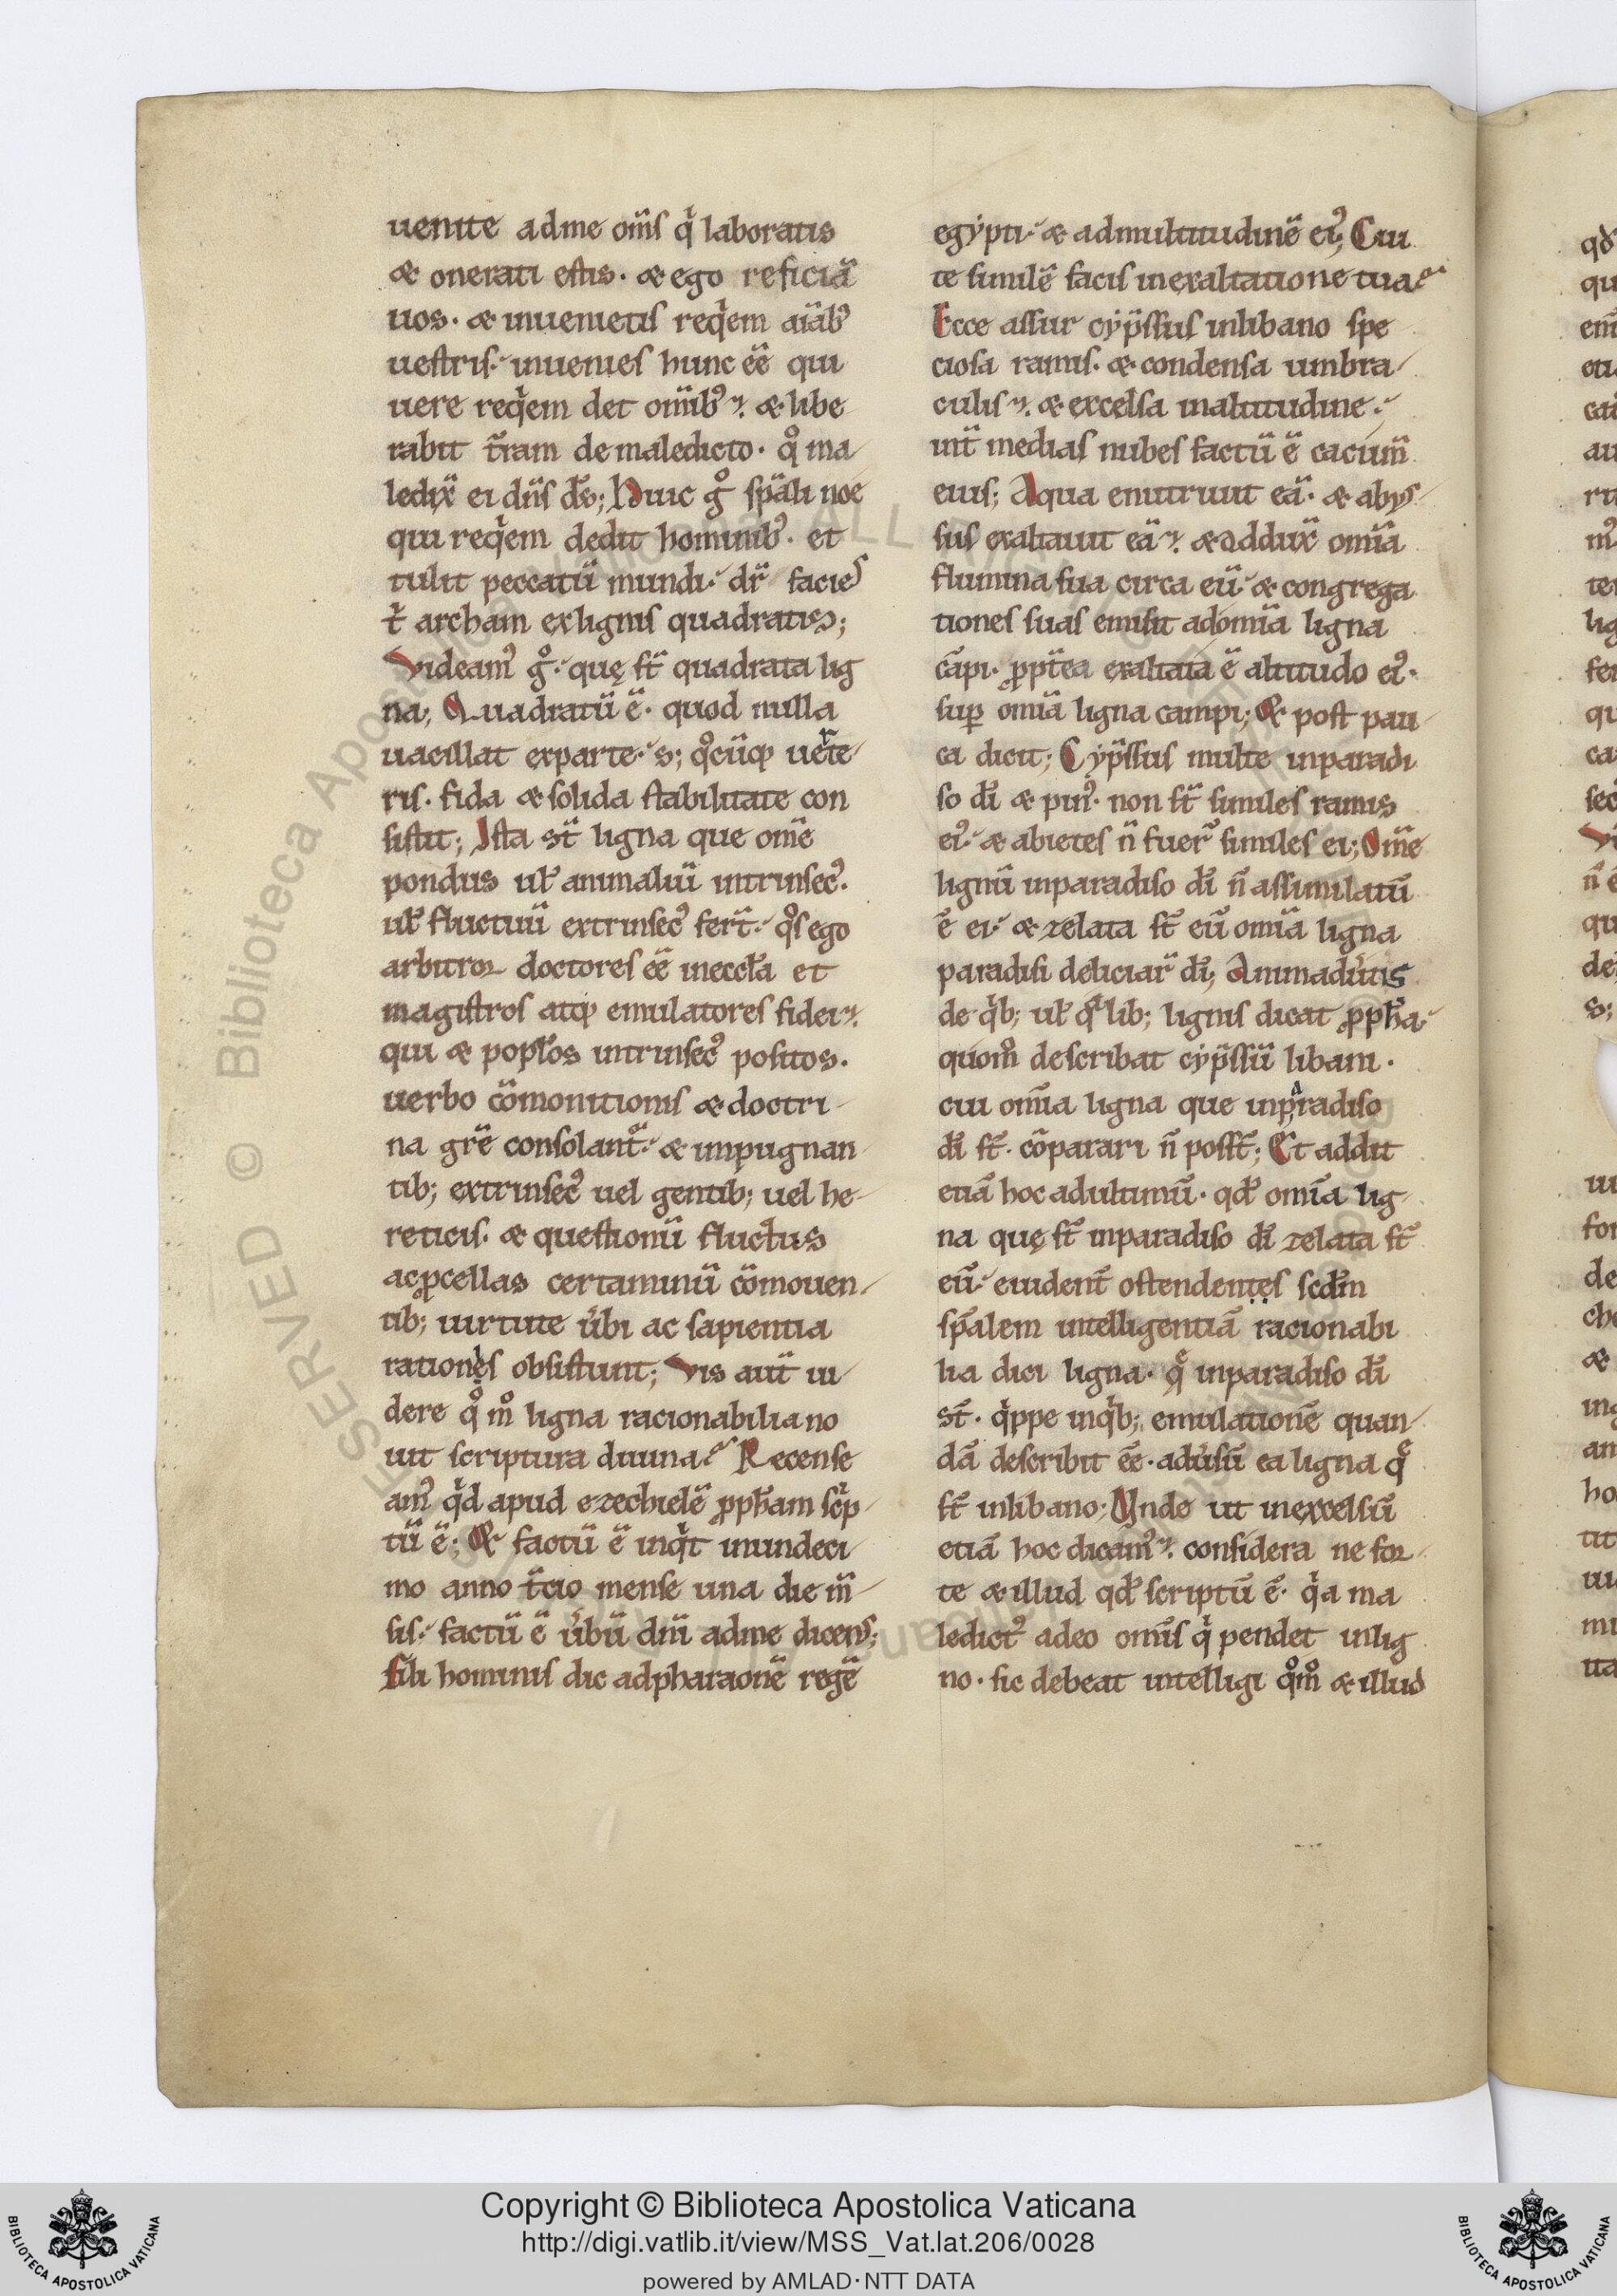 uenite ad me om̄s q̇ laboratis
& onerati estis. & ego reficiā
uos. & inuenietis req̇em aīab᾽
uestris. inuenies hunc ēē qui
uere req̇em det omīb᾽. & libe
rabit t̄ram de maledicto. q̊ ma
ledix̄ ei dn̄s ds̄; Huic g̊ sp̄ali noe
qui req̇em dedit hominib᾽. et
tulit peccatū mundi. dr̄ facies
ṫ archam ex lignis quadratis;
Videam᾽ g̊. quę st̄ quadrata lig
na; Quadratū ē. quod nulla
uacillat ex parte. s; q̊cūq; uerte
ris. fida & solida stabilitate con
sistit; Ista st̄ ligna que om̄e
pondus ul̄ animaliū intrinsec᾽.
ul̄ fluctuū extrinsec᾽ fert̄. q̊s ego
arbitror doctores ēē in eccl̄a et
magistros atq; emulatores fidei.
qui & popl̄os intrinsec᾽ positos.
uerbo cōmonitionis & doctri
na grē consolant̄. & impugnan
tib; extrinsec᾽ uel gentib; uel he
reticis. & questionū fluctus
ac ꝓcellas certaminū cōmouen
tib; uirtute u̇bi ac sapientia
rationės obsistunt; Vis aut̄ ui
dere q̊m̊ ligna racionabilia no
uit scriptura diuina? Recense
am᾽ q̇d apud ezechielē ꝓph̄am sċp
tū ē; & factū ē inq̇t in undeci
mo anno t̄cio mense una die m̄
sis. factū ē u̇bū dn̄i ad me dicens;
Fili hominis dic ad pharaonē regē
egẏpti. & ad multitudinē ei᾽; Cui
te similē facis in exaltatione tua?
Ecce assur cẏp̄ssus in libano spe
ciosa ramis. & condensa umbra
culis. & excelsa in altitudine.
int̄ medias nubes factū ē cacum̄
eius; Aqua enutriuit eā. & abys
sus exaltauit eā. & addux̄ omīa
flumina sua circa eū. & congrega
tiones suas emisit ad omīa ligna
cāpi. ꝓpt̄ea exaltata ē altitudo ei᾽.
sup̱ omīa ligna campi; & post pau
ca dicit; Cẏp̄ssus multe in paradi
so dī & pin᾽. non st̄ similes ramis
ei᾽. & abietes n̄ fuer̄ similes ei; Om̄e
lignū in paradiso dī n̄ assimilatū
ē ei. & zelata st̄ eū omīa ligna
paradisi deliciar̄ dī; Animadu̇tis
de q̇b; ul̄ qͣlib; lignis dicat ꝓph̄a.
quom̊ describat cẏp̄ssū libani.
cui omīa ligna que in paradiso
dī st̄. cōparari n̄ posst̄; Et addit
etiā hoc ad ultimū. qd̄ omīa lig
na quę st̄ in paradiso dī zelata st̄
eū. euident̄ ostendentẹs scdm̄
sp̄alem intelligentiā racionabi
lia dici ligna. qͤ in paradiso dī
st̄. q̇ppe inq̇b; emulationē quan
dā describit ēē. adu̇sū ea ligna qͤ
st̄ in libano; Vnde ut in excelsū
etiā hoc dicam᾽. considera ne for
te & illud qd̄ scriptū ē. q̇a ma
ledict᾽ a deo omīs q̇ pendet in lig
no. sic debeat intelligi q̊m̊ & illud
Copyright © Biblioteca Apostolica Vaticana
http://digi.vatlib.it/view/MSS_Vat.lat.206/0028
powered by AMLAD·NTT DATA
BIBLIOTECA APOSTOLICA VATICANA
BIBLIOTECA APOSTOLICA VATICANA